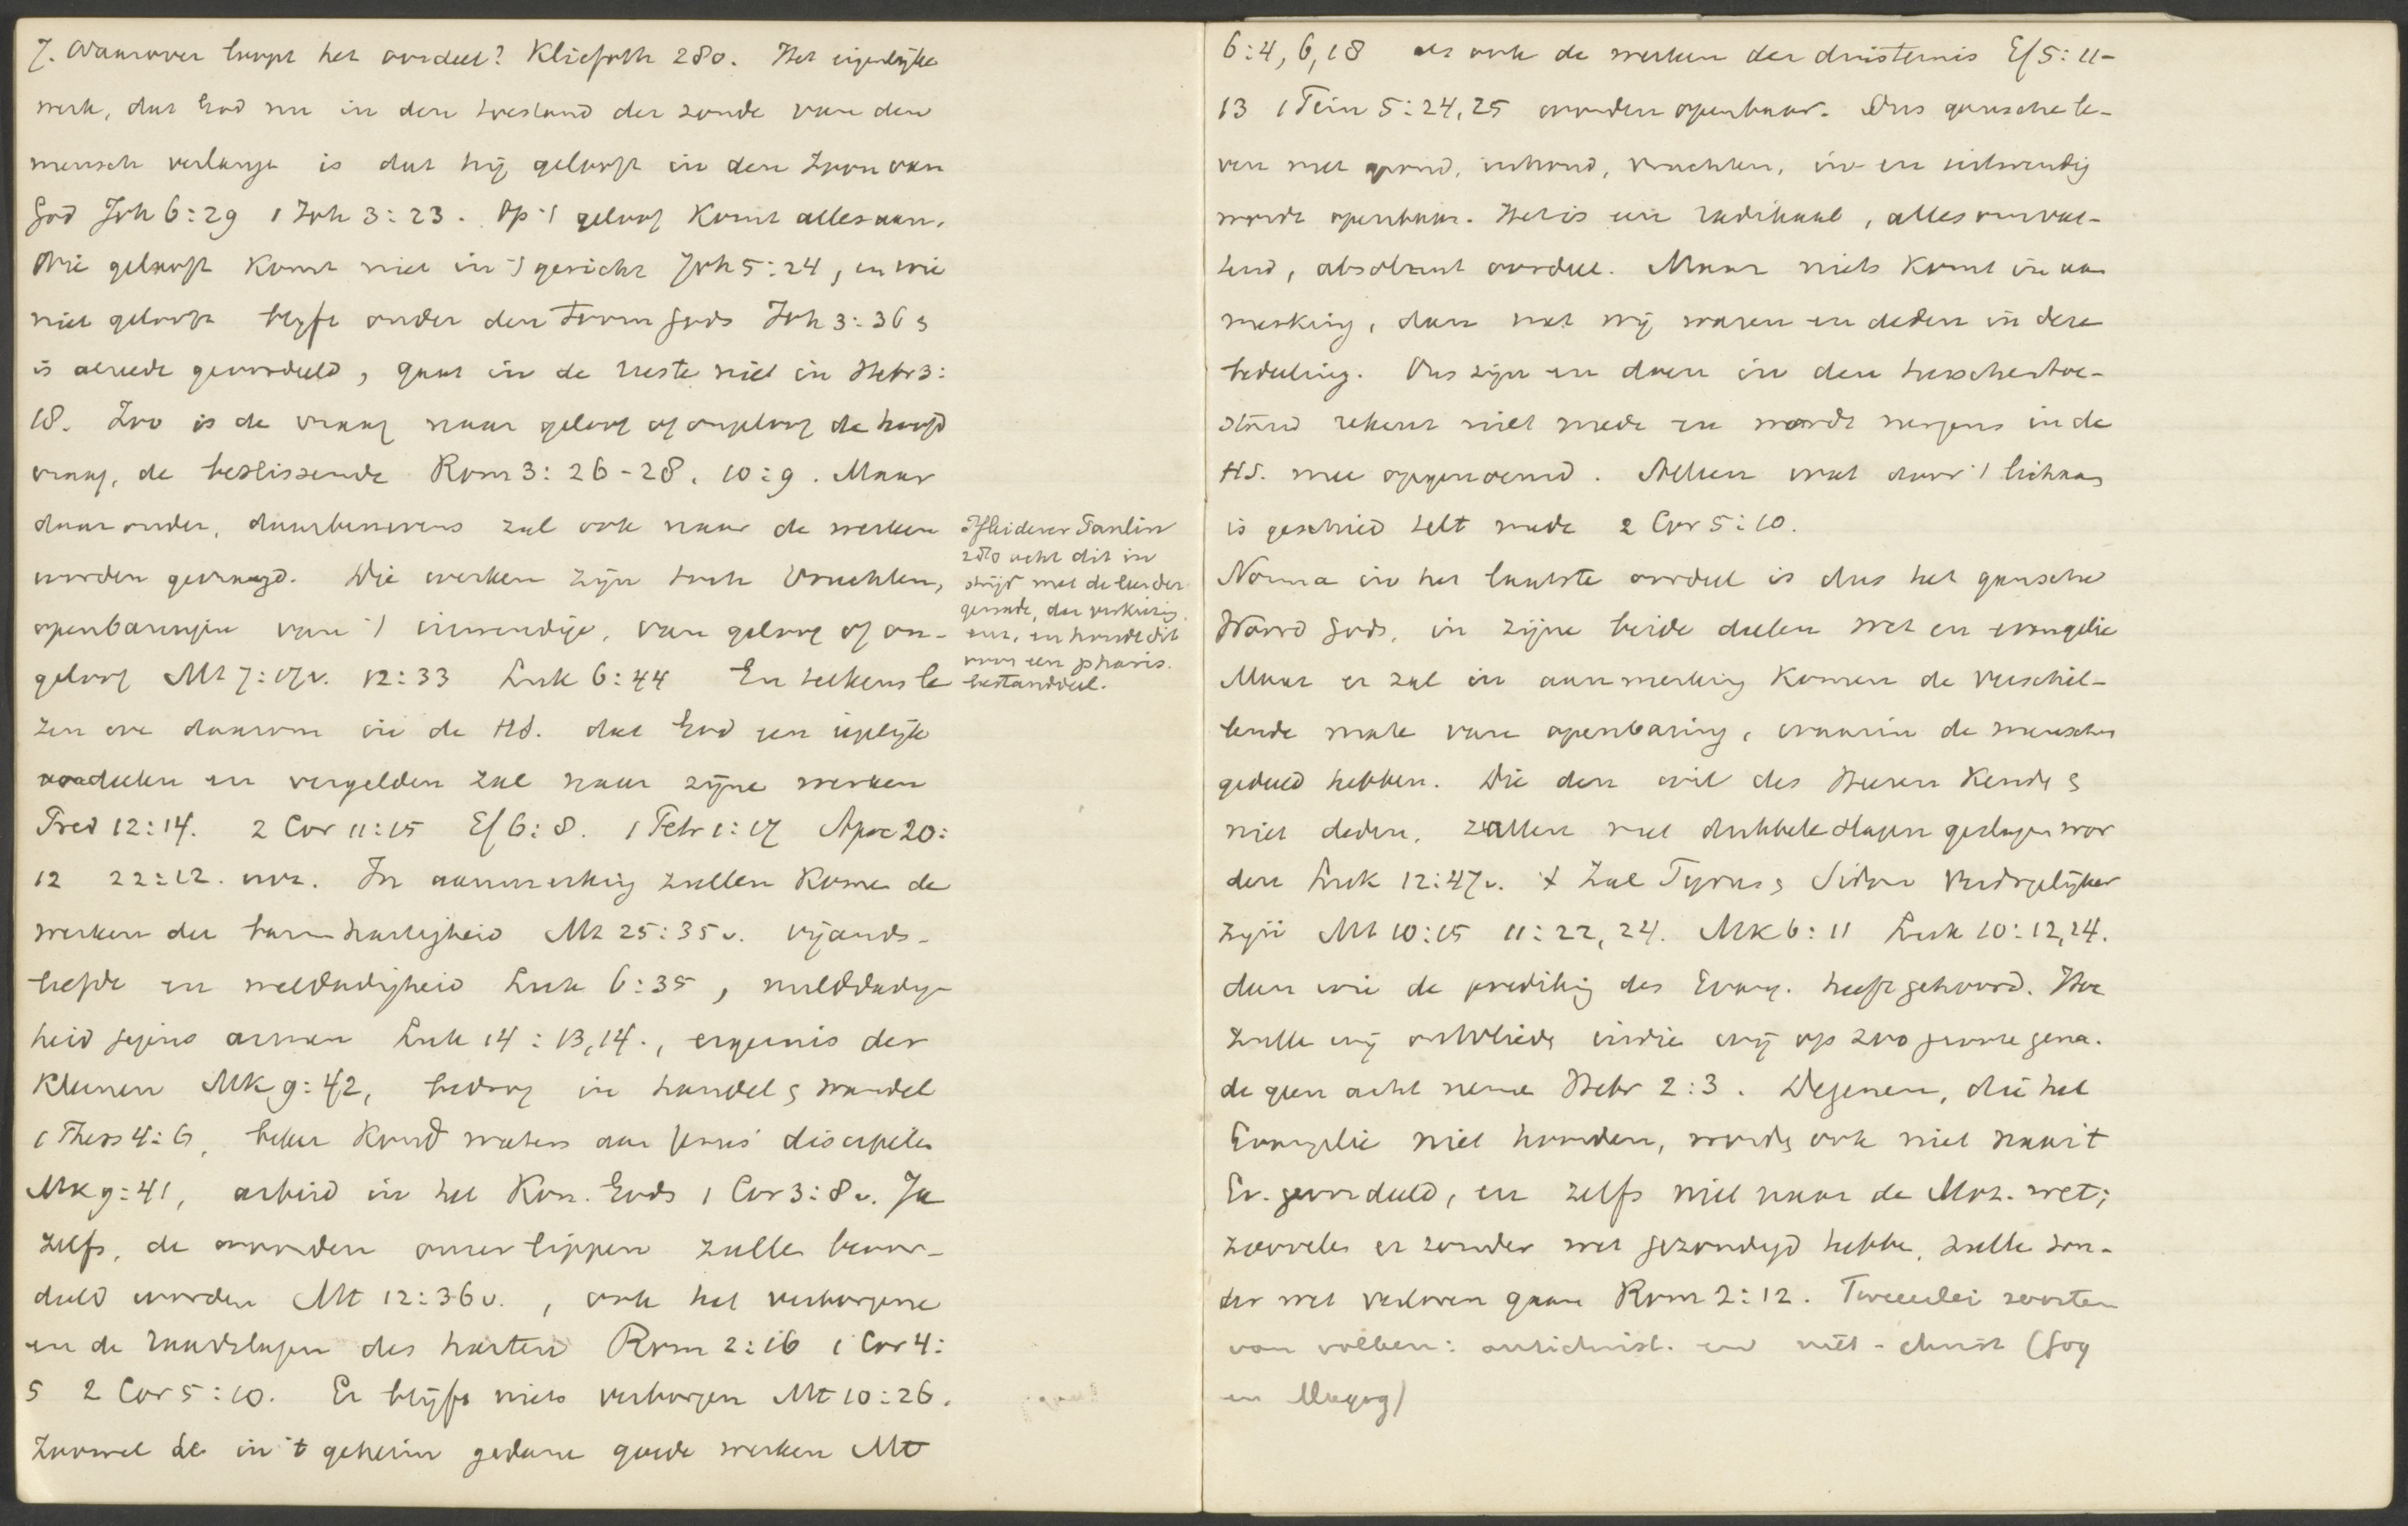 7. Waarover loopt het oordeel? Kliefoth 280. Het eigenlijke
werk, dat God nu in den toestand der zonde van den
mensch verlangt is dat hij gelooft in den Zoon van
God Joh 6:29 1 Joh 3:23. Op 't geloof komt alles aan.
Wie gelooft komt niet in 't gericht Joh 5:24, en wie
niet gelooft blijft onder den toorn Gods Joh 3:36 &
is alreede geoordeeld, gaat in de ruste niet in Hebr 3:
18. Zoo is de vraag naar geloof of ongeloof de hoofd
vraag, de beslissende Rom 3:26-28. 10:9. Maar
daaronder, daarbenevens zal ook naar de werken
worden gevraagd. Die werken zijn toch vruchten,
openbaringen van 't inwendige, van geloof of on-
geloof Mt 7:17v. 12:33 Luk 6:44 En telkens le
zen we daarom in de HS. dat God een iegelijk
oordeelen en vergelden zal naar zijne werken
Pred 12:14. 2 Cor 11:15 Ef 6:8. 1 Petr 1:17 Apoc 20:
12 22:12. enz. In aanmerking zullen komen de
werken der barmhartigheid Mt 25:35v. vijands-
liefde en weldadigheid Luk 6:35, milddadig
heid jegens armen Luk 14:13,14., ergernis der
kleinen Mk 9:42, bedrog in handel & wandel
1 Thess 4:6, beker koud waters aan Jezus' discipelen
Mk 9:41, arbeid in het Kon. Gods 1 Cor 3:8v. Ja
zelfs, de woorden onzer lippen zullen beoor-
deeld worden Mt 12:36v., ook het verborgene
en de raadslagen des harten Rom 2:16 1 Cor 4:
5 2 Cor 5:10. Er blijft niets verborgen Mt 10:26.
Zoowel de in 't geheim gedane goede werken Mt
Pfleiderer Paulin
280 acht dit in
strijd met de leer der
genade, der verkiezing
enz. en houdt dit
voor een pharis.
bestanddeel.
6:4,6,18 als ook de werken der duisternis Ef 5:11-
13 1 Tim 5:24,25 worden openbaar. Ons gansche le-
ven met grond, inhoud, vruchten, in- en uitwendig
wordt openbaar. Het is een radikaal, allesomvat-
tend, absoluut oordeel. Maar niets komt in aan
merking, dan wat wij waren en deden in deze
bedeeling. Ons zijn en doen in den tusschentoe-
stand rekent niet mede en wordt nergens in de
HS. mee opgenoemd. Alleen wat door 't lichaam
is geschied telt mede 2 Cor 5:10.
Norma in het laatste oordeel is dus het gansche
Woord Gods, in zijne beide deelen wet en evangelie
Maar er zal in aanmerking komen de verschil-
lende mate van openbaring, waarin de menschen
gedeeld hebben. Die den wil des Heeren kende &
niet deden, zullen met dubbele slagen geslagen wor
den Luk 12:47v. 't Zal Tyrus & Sidon verdragelijker
zijn Mt 10:15 11:22,24. Mk 6:11 Luk 10:12,14.
dan wie de prediking des Evang. heeft gehoord. Hoe
zullen wij ontvlieden indien wij op zoo groote gena-
de geen acht nemen Hebr 2:3. Degenen, die het
Evangelie niet hoorden, worden ook niet naar 't
Ev. geoordeeld, en zelfs niet naar de Moz. wet;
zoovelen er zonder wet gezondigd hebben, zullen zon-
der wet verloren gaan Rom 2:12. Tweeërlei soorten
van volken: antichrist. en niet-christ (Gog
en Magog)